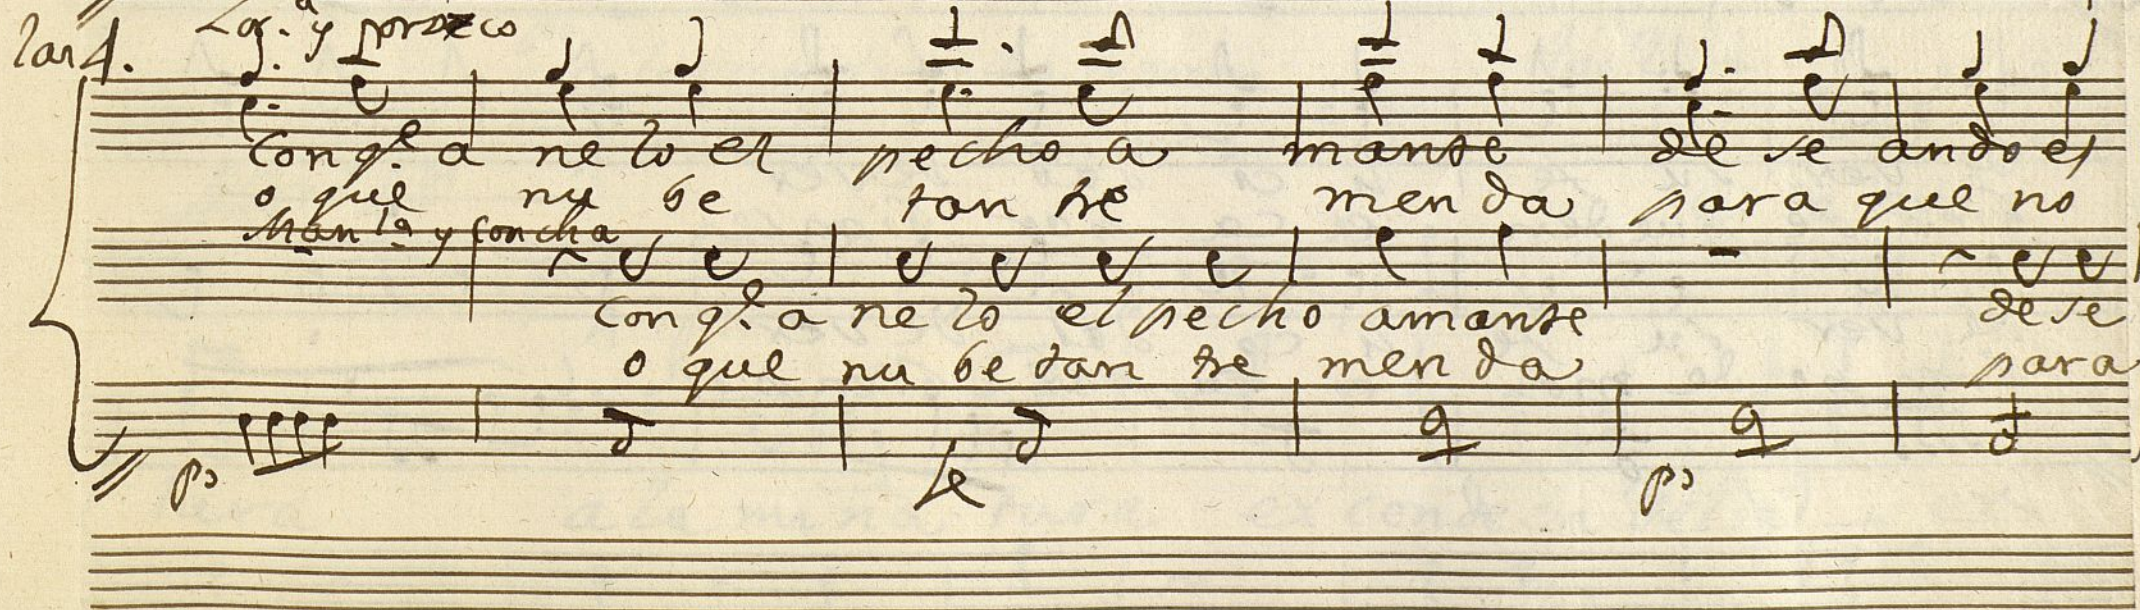 las 4. Lag.ª y porzeco
con q.e a ne lo el pecho a mante de se ando el
o que nu be tan tre menda para que no
Man.la y Concha
con q.e a ne lo el pecho amante dese
o que nu be tan tre men da para
po fe po